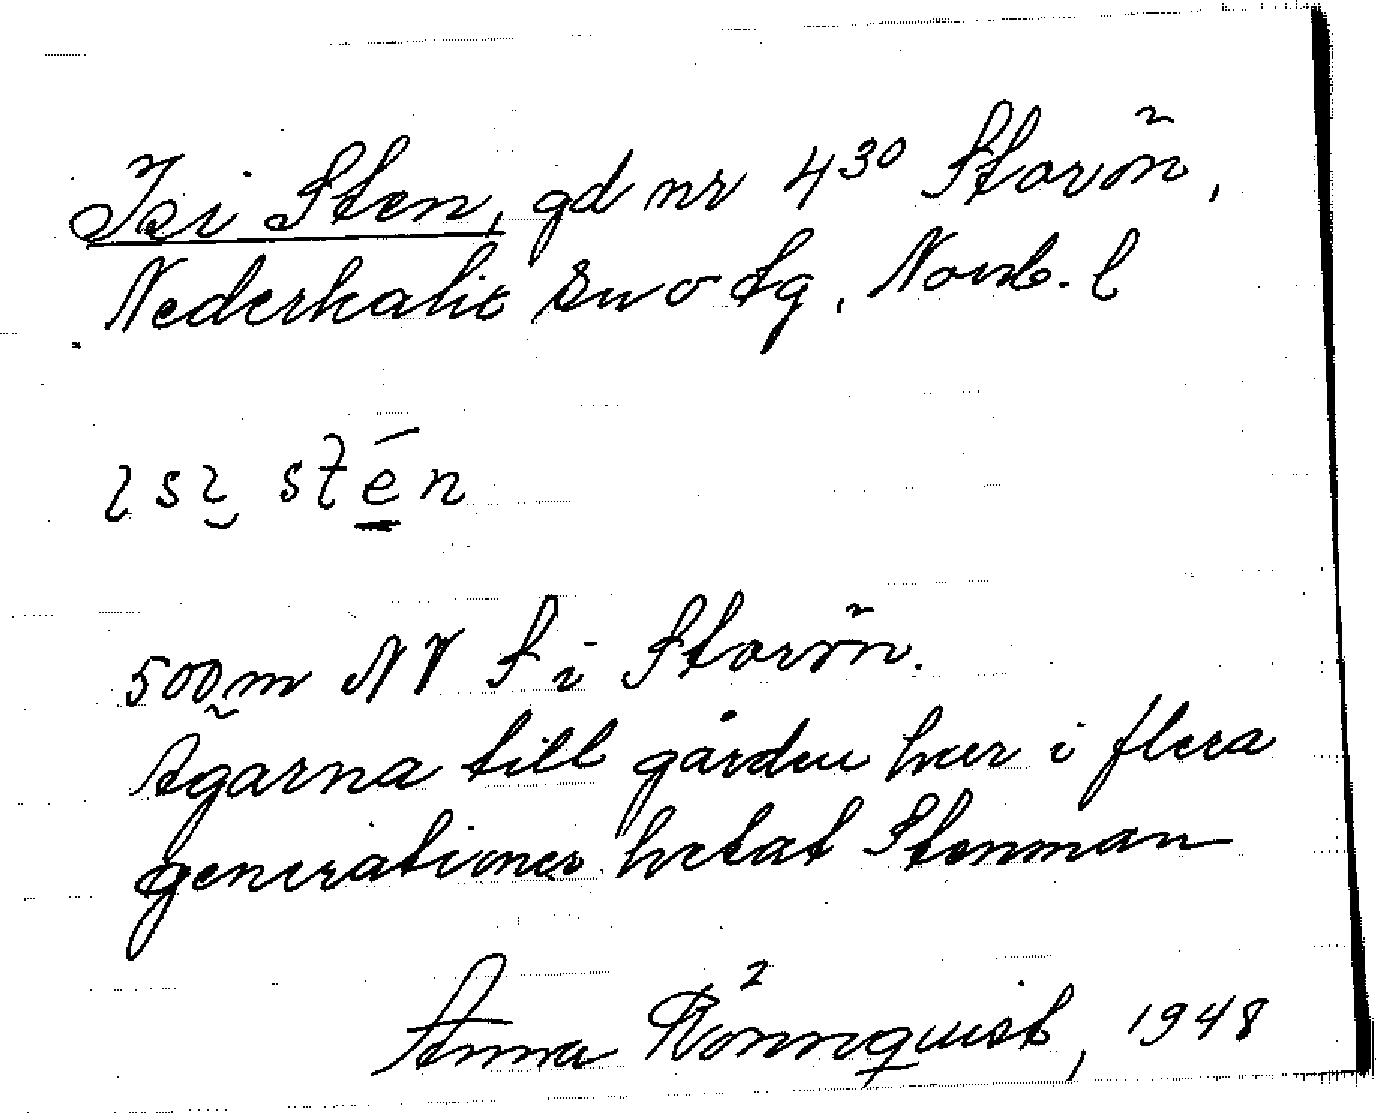 Isi Sten, gd nr 4³⁰ Storön,
Nederkalix sn o tg, Norrb. l
ɩsɩ̮ stēn
500 m NV S i Storön.
Ägarna till gården har i flera
generationer hetat Stenman
Anna Rönnquist, 1948